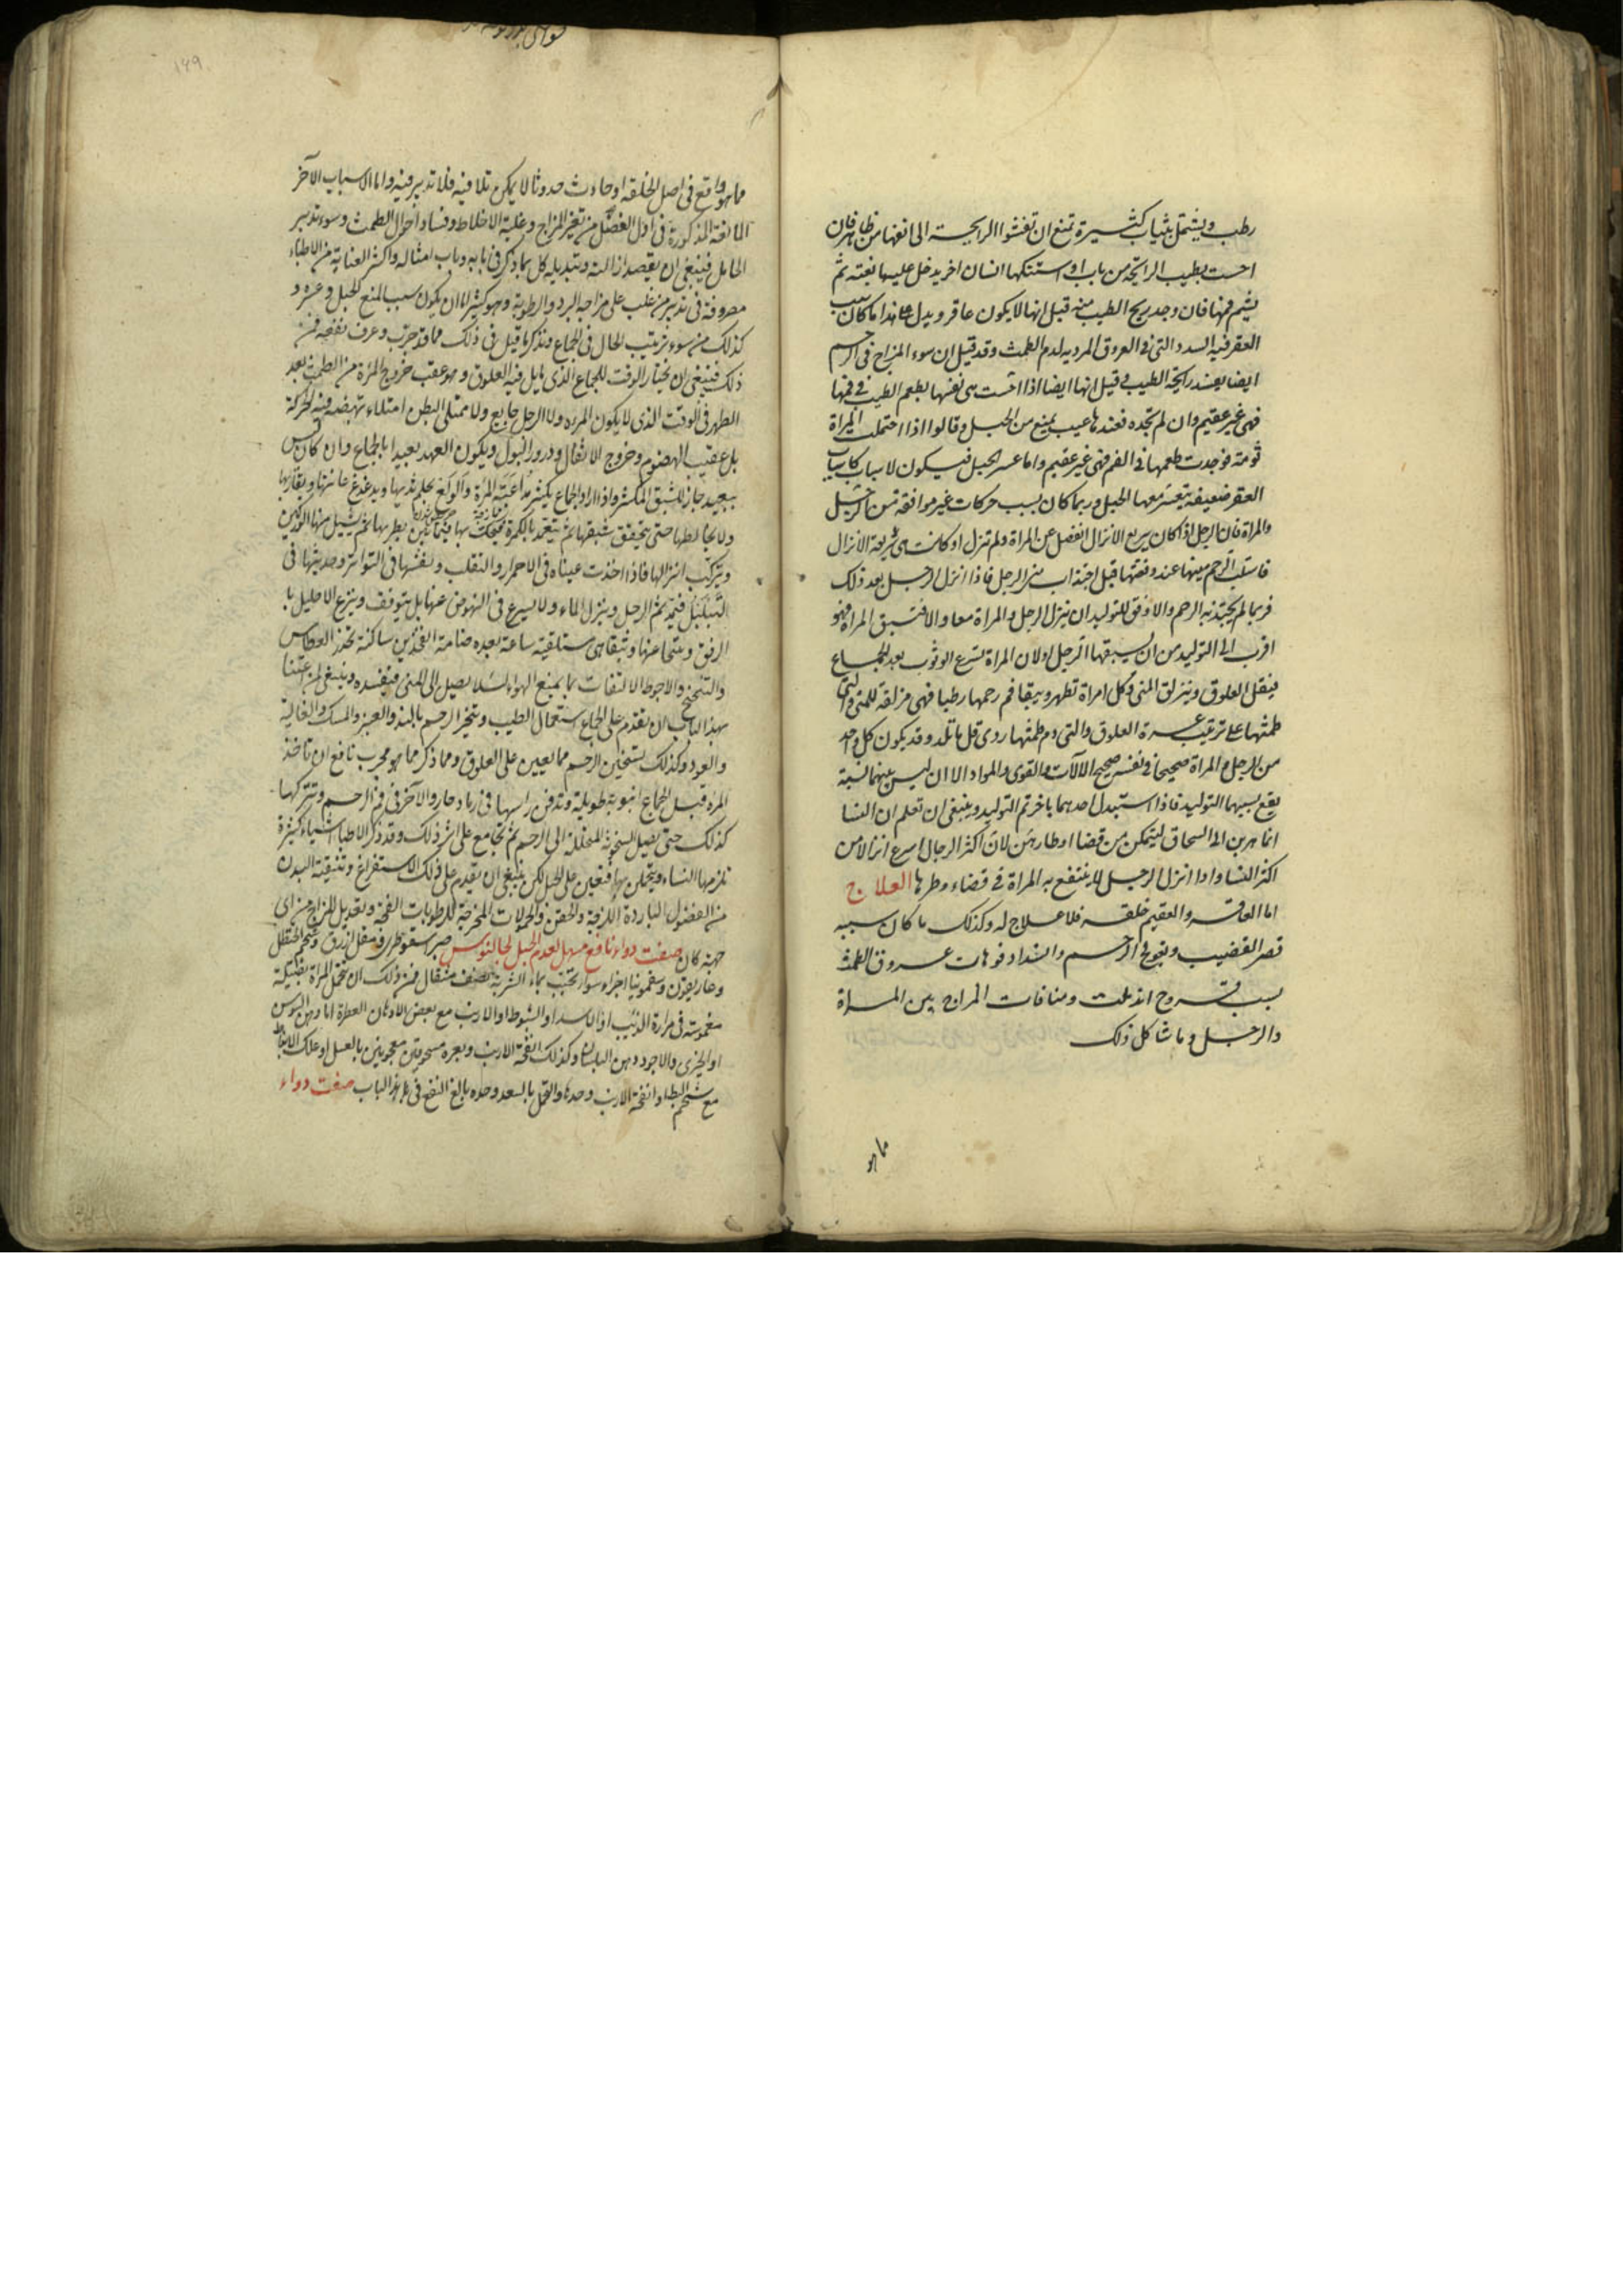 رطب ويشتمل بثياب كثيرة تمنع ان تغشوا الرايحة الى انفها من ظاهر فان
احست بطيب الرائحة من باب او استنكهها انسان اخر يدخل عليها بغتة ثم
يشم فمها فان وجد ريح الطيب منه قيل انها لا يكون عاقر ويدل على هذا ما كان سبب
العقر فيه السدد التى فى العروق المرديه لدم الطمث وقد قيل ان سوء المزاج فى الرحم
ايضا يفسد رائحة الطيب و قيل انها ايضا اذا احست هى نفسها بطعم الطيب فى فمها
فهى غير عقيم وان لم تجده فعندها عيب يمنع من الحبل وقالوا اذا احتملت المراة
ثومة فوجدت طعمها فى الفم فهى غير عقيم واما عسر الحبل فيكون لاسباب كاسباب
العقر ضعيفه يتعسر معها الحبل وربما كان بسبب حركات غير موافقة من الرجل
والمراة فان الرجل اذا كان سريع الانزال انفصل عن المراة ولم تنزل او كانت هى سريعة الانزال
فاستلب الرحم منيها عند دفقها قبل اجتذاب منى الرجل فاذا انزل الرجل بعد ذلك
فربما لم يجتذبه الرحم والاوفق للتوليد ان ينزل الرجل والمراة معا والا فتسبق المراة فهو
اقرب الى التوليد من ان يسبقها الرجل اولان المراة تسرع الوثوب بعد الجماع
فينقل العلوق وينزلق المنى وكل امراة تطهر ويبقا فم رحمها رطبا فهى مزلقة للمنى والتى
طمثها على ترتيب عسرة العلوق والتى دم طمثها ردى قل ما تلد وقد يكون كل واحد
من الرجل والمراة صحيحا فى نفسه صحيح الالات والقوى والمواد الا ان ليس بينهما نسبة
يقع بسببها التوليد فاذا استبدل احدهما باخر تم التوليد وينبغى ان تعلم ان النسا
انما هربن الى السحاق ليتمكن من قضا اوطارهن لان اكثر الرجال اسرع انزالا من
اكثر النسا واذا انزل الرجل لا ينتفع به المراة فى قضاء وطرها العلاج
اما العاقر والعقيم خلقه فلا علاج له وكذلك ما كان سببه
قصر القضيب وتعويج الرحم وانسداد فوهات عروق الطمث
بسبب قروح اندملت ومنافات المزاج بين المراة
والرجل وما شاكل ذلك
مما هو
مما هو واقع فى اصل الخلقة او حادث حدوثا لا يمكن تلافيه فلا تدبير فيه واما الاسباب الاخر
المانعة المذكورة فى اول الفصل من تغير المزاج وغلبة الاخلاط وفساد احوال الطمث وسوء تدبير
الحامل فينبغى ان يقصد ازالته وتبديله كل بما ذكر فى بابه وباب امثاله واكثر العناية من الاطباء
مصروفة فى تدبير من غلب على مزاجه البرد والرطوبة وهو كثيرا ما ان يكون سبب المنع للحبل وعسره و
كذلك من سوء ترتيب الحال فى الجماع ونذكر ما قيل فى ذلك مما قد جرب وعرف نفعه فمن
ذلك فينبغى ان يختار الوقت للجماع الذى يامل فيه العلوق وهو عقب خروج المرة من الطمث بعد
الطهر فى الوقت الذى لا يكون المراه ولا الرجل جايع ولا ممتلى البطن امتلاء تبهضه فيه الحركة
بل عقيب الهضوم وخروج الاثفال ودرور البول ويكون العهد بعيدا بالجماع وان كان ليس
ببعيد جاز للشبق المكثر واذا اراد الجماع يكثر مداعبة المرة والولع بحلم ثديها ويدغدغ عانتها ويقاربها
ولا يخالطها حتى يتحقق شبقها ثم يتعمد بالكمرة فيحك بها فيما بين بظريها ثم يشيل منها الوركين
ويترقب انزالها فاذا اخذت عيناه فى الاحمرار والتقلب ونفسها فى التواتر وحديثها فى
التبلبل فيتم ثم الرجل وينزل الماء ولا يسرع فى النهوض عنها بل يتوقف وينزع الاحليل با
الرفق ويتنحا عنها وتبقا هى مستلقية ساعة بعده ضامة الفخذين ساكنة تحذر العطاس
والتنحنح والاحوط الالتفات بما يمنع الهواء لئلا يصل الى المنى فيفسده وينبغى لمن اعتنا
بهذا الباب ان يقدم على الجماع استعمال الطيب وتبخير الرحم بالند والعنبر والمسك والغالية
والعود وكذلك تسخين الرحم مما يعين على العلوق ومما ذكر مما هو مجرب نافع ان تاخذ
المرة قبل الجماع انبوبة طويلة وتدفن راسها فى رماد حار والاخر فى فم الرحم وتتركها
كذلك حتى يصل السخونة المحتملة الى الرحم ثم تجامع على اثر ذلك وقد ذكر الاطبا اشياء كثيرة
تلزمها النساء ويتحملن بها فتعين على الحبل لكن ينبغى ان يقدم على ذلك الاستفراغ وتنقية البدن
من الفضول الباردة اللزجة والحقن والحمولات المخرجة للرطوبات الفجة وتعديل المزاج من اى
جهة كان صفت دواء نافع مسهل لعدم الحبل لجالينوس صبر سقوطرى ومقل ازرق وشحم الحنظل
وغاريقون وسقمونيا اجزاء سواء تحبب بماء الشربة نصف مثقال فمن ذلك ان تتحمل المراة بفتيلة
مغموسة فى مرارة الذئب او الاسد او الشبوط او الارنب مع بعض الادهان العطرة اما دهن السوسن
او الخيرى والاجود دهن البلسان وكذلك انفحة الارنب وبعره مسحوقين معجونين بالعسل او علك الانباط
مع شحم البط او انفحة الارنب وحدها والتحمل بالسعد وحده بالغ النفع فى هذا الباب صفت دواء